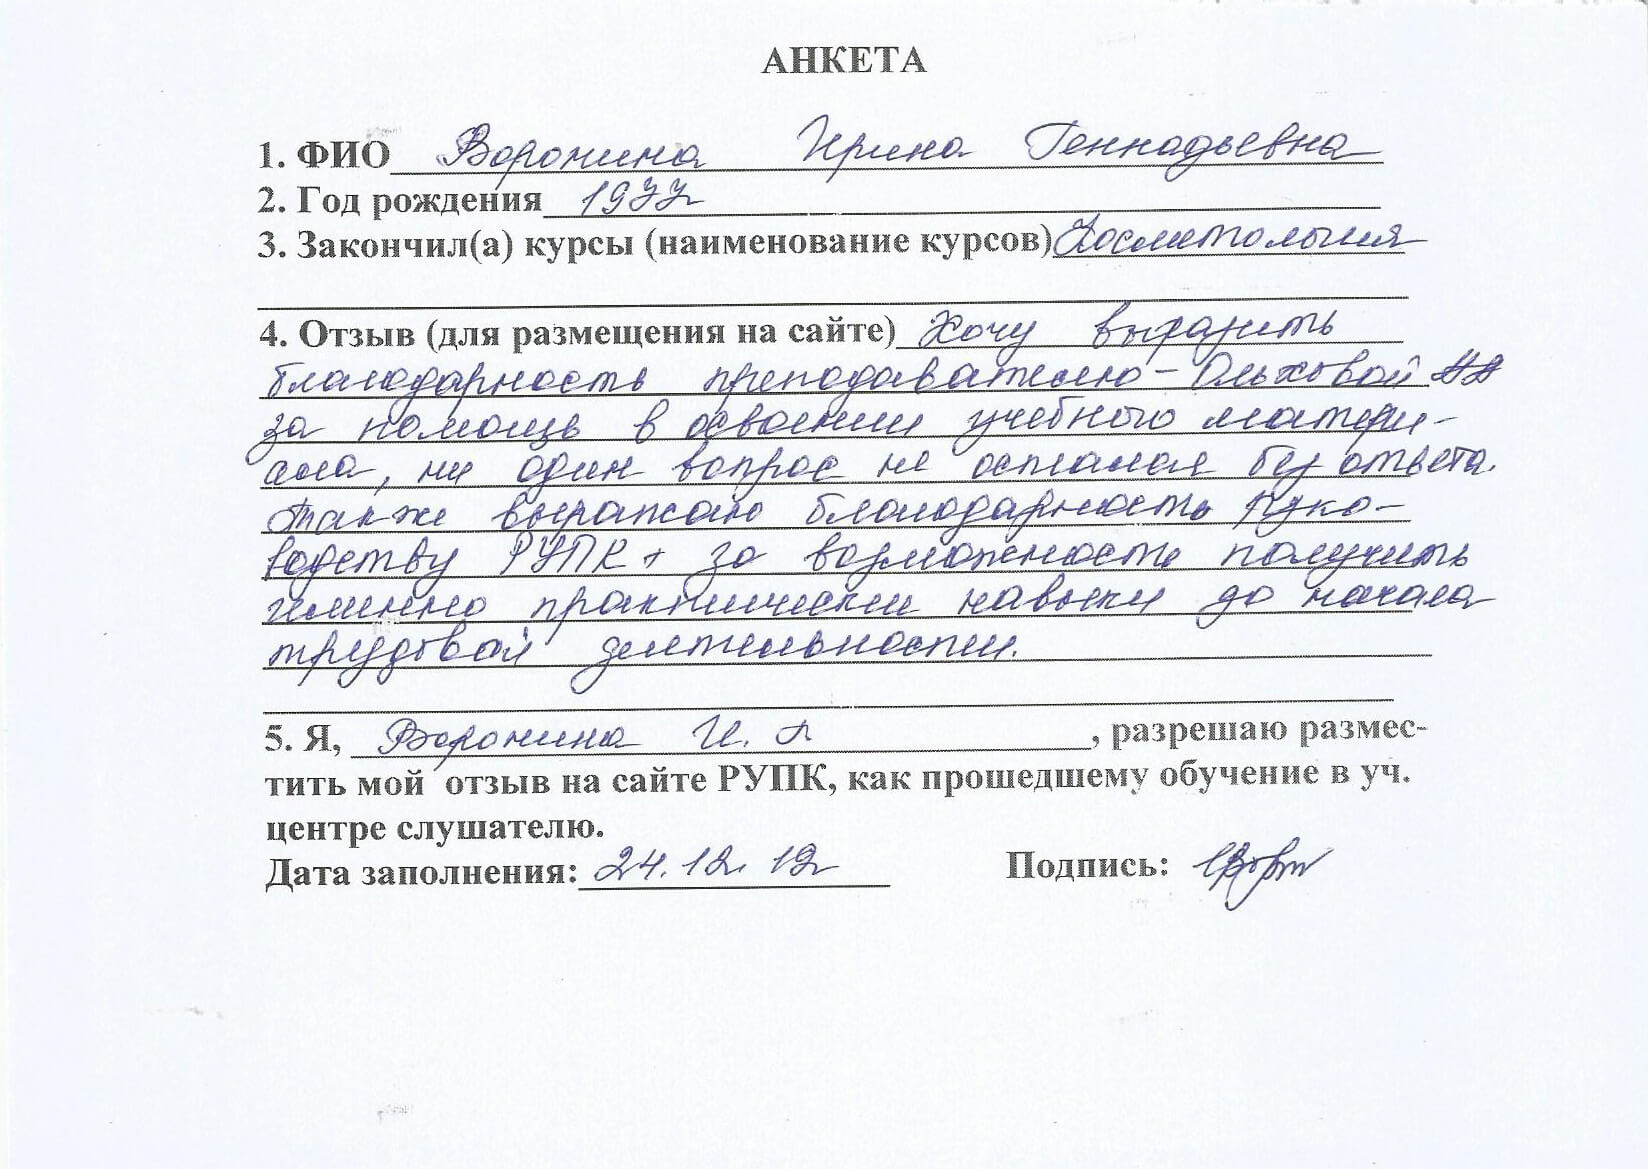 АНКЕТА
1. ФИО Воронина Ирина Геннадьевна
2. Год рождения 1977
3. Закончил(а) курсы (наименование курсов) Косметология
4. Отзыв (для размещения на сайте) Хочу выразить
благодарность преподавателю - Ольховой
за помощь в освоении учебного матери-
ала, ни один вопрос не остался без ответа.
Также выражаю благодарность руко-
водству РУПК за возможность получить
именно практические навыки до начала
трудовой деятельности.
5. Я, Воронина И. Г, разрешаю размес-
тить мой отзыв на сайте РУПК, как прошедшему обучение в уч.
центре слушателю.
Дата заполнения: 24.12.12 Подпись: